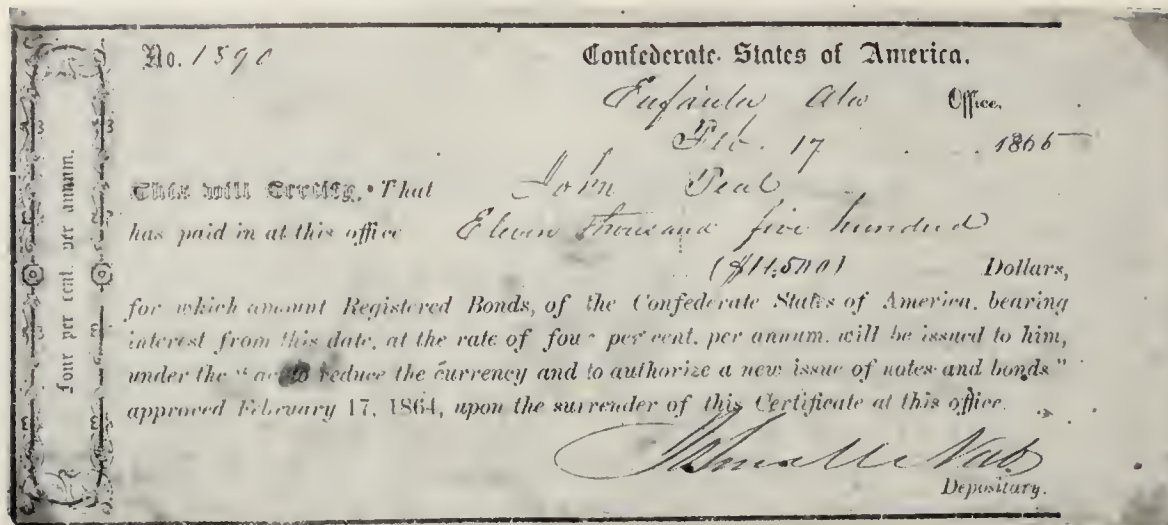 No. 1590 Confederate States of America.
Eufaula Ala Office.
Feb. 17 1865
This will Certify, That John Teal
has paid in at this office Eleven thousand five hundred
($11,500) Dollars,
for which amount Registered Bonds, of the Confederate States of America, bearing
interest from this date, at the rate of four per cent. per annum, will be issued to him,
under the "act to reduce the currency and to authorize a new issue of notes and bonds"
approved February 17, 1864, upon the surrender of this Certificate at this office.
Depositary.
Four per cent. per annum.